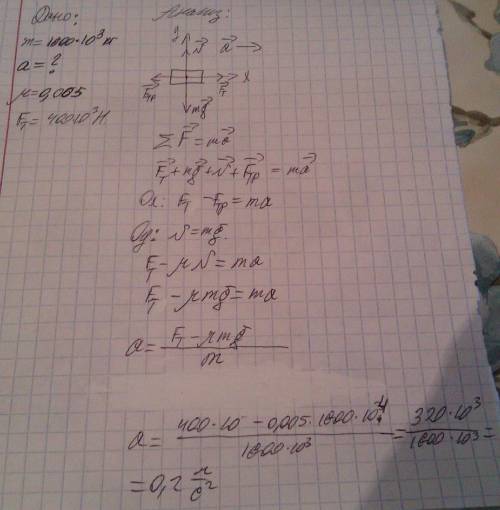 Дано:
Анализ:
m=1800·10³кг
a=?
μ=0,005
Fт=400·10³Н
y
N
a
x
Fтр
Fт
mg
ΣF=ma
Fт+mg+N+Fтр=ma
Ox: Fт-Fтр=ma
Oy: N=mg
Fт-μN=ma
Fт-μmg=ma
a=(Fт-μmg)/m
a=(400·10 -0,005·1600·10⁴)/(1600·10³)=(320·10³)/(1600·10³)=
=0,2 м/с²